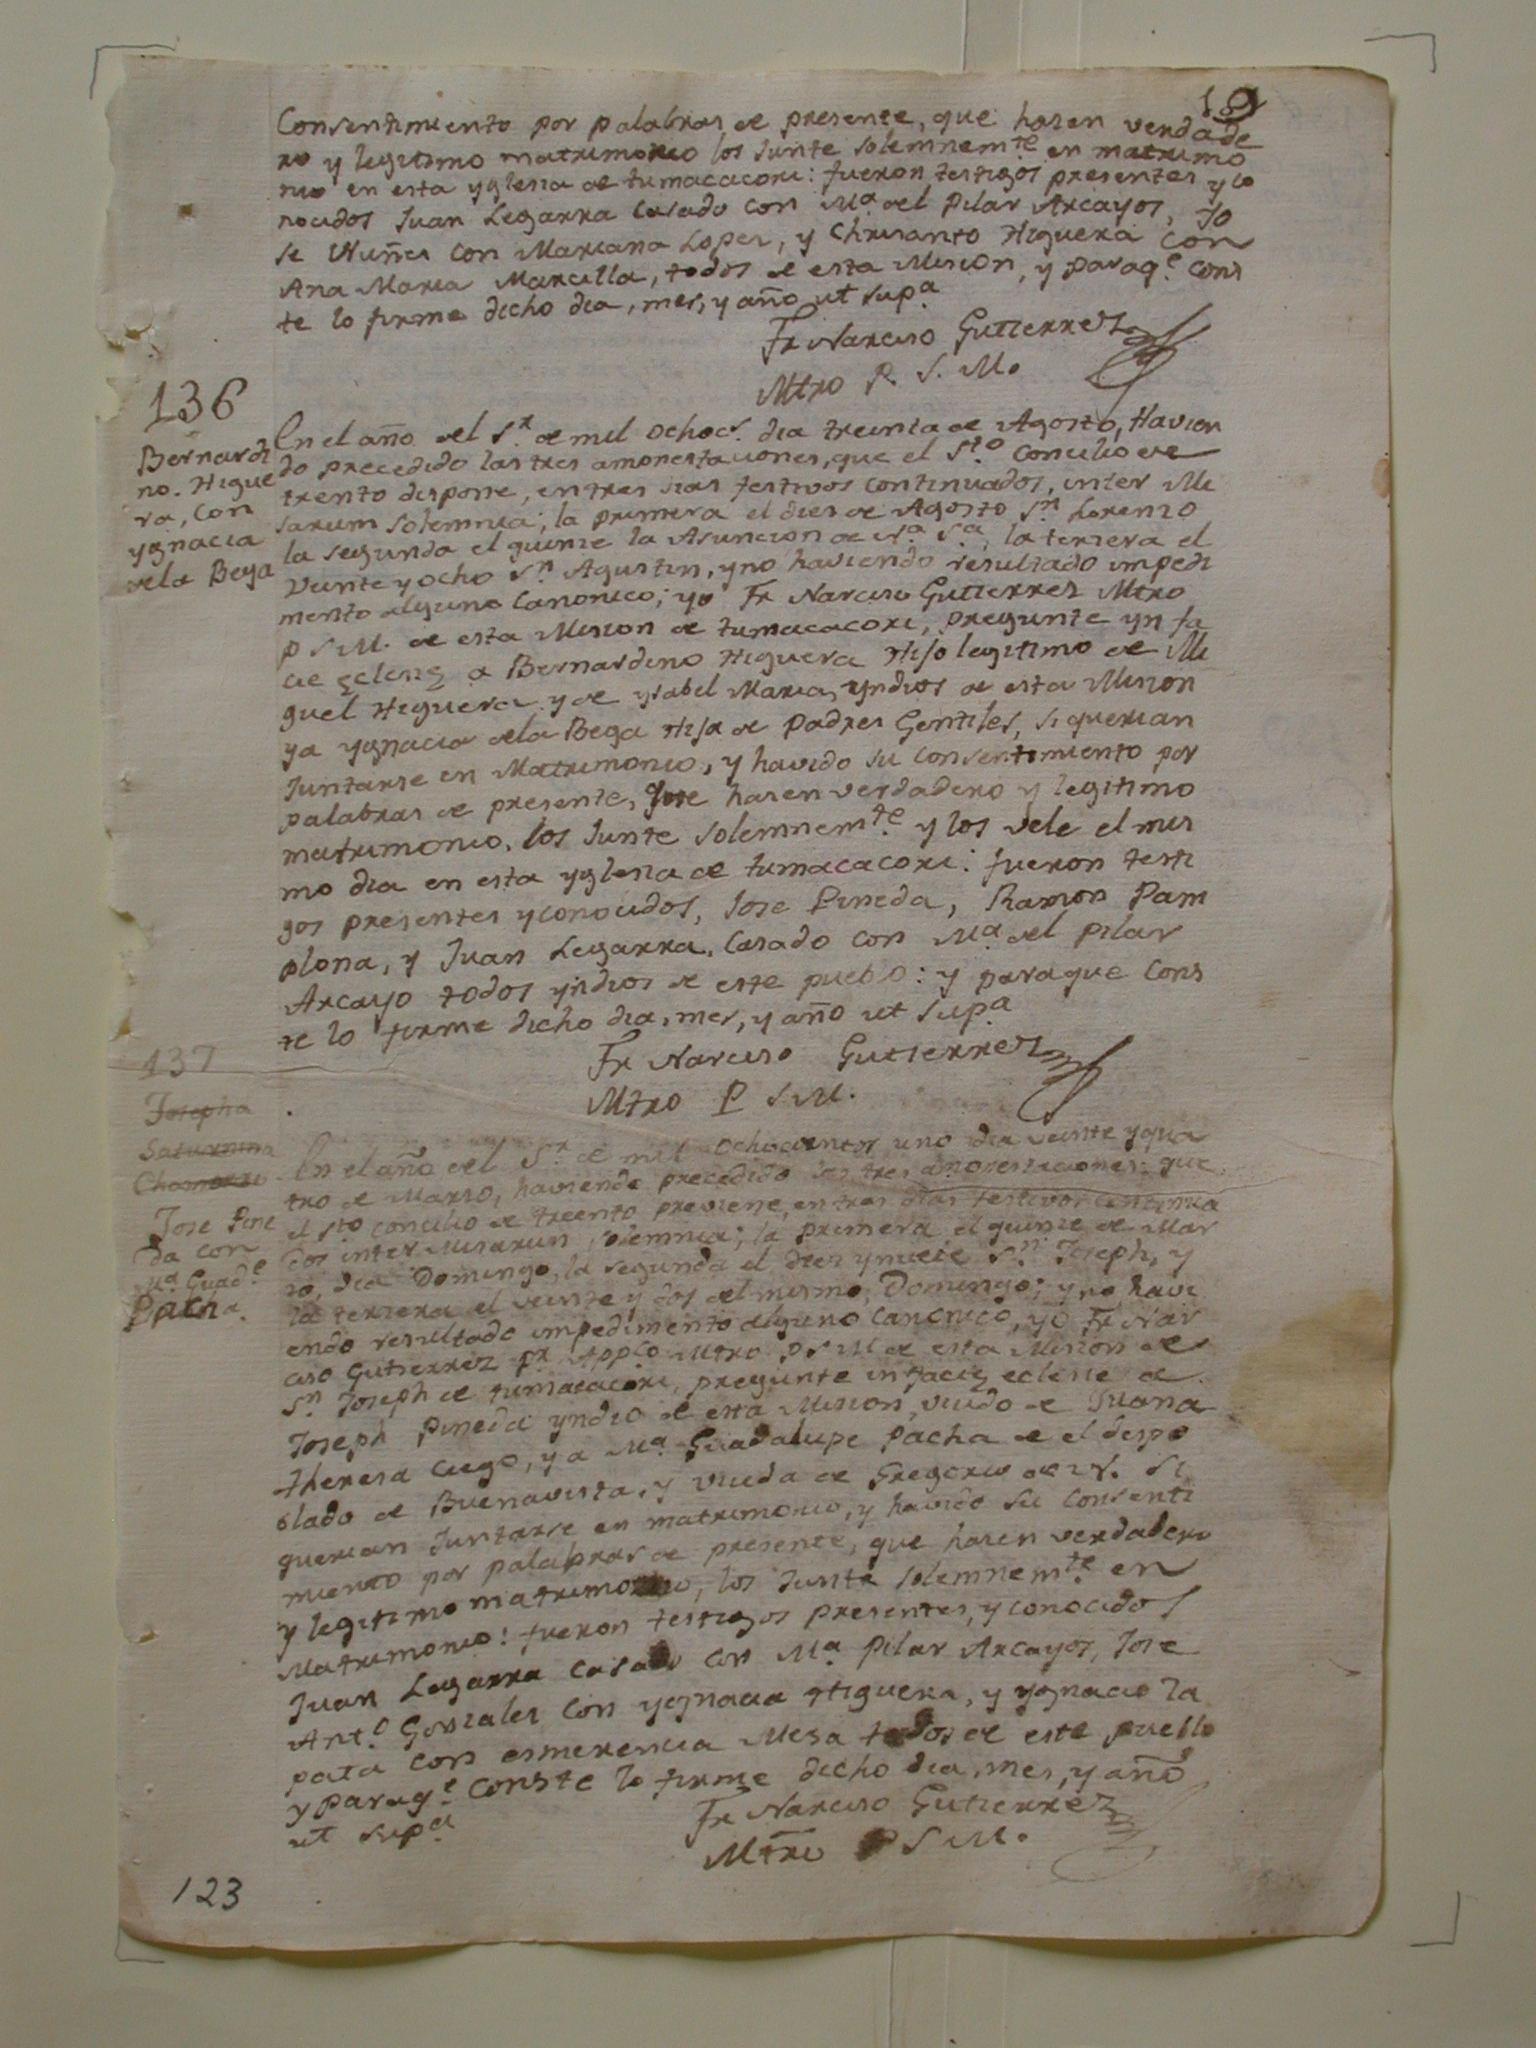 Consentimiento por palabras de presente, que hasen verdade
ro y legitimo matrimonio los Junte solemnem.te en matrimo
nio en esta yglesia de tumacacori: fueron testigos presentes y co
nocidos Juan Legarra Casado con M.a del Pilar Arcayos, Jo
se Nuñes con Mariana Lopes, y Chrisanto Higuera con
Ana Maria Marcilla, todos de esta Mision, y paraq.e cons
te lo firme dicho dia, mes, y año ut sup.a
Fr Narciso Gutierrez
Mtro P. S. M.
136
Bernardi
no. Higue
ra, con
ygnacia
dela Bega
En el año del S.r de mil ochoc.s dia treinta de Agosto, Havien
do precedido las tres amonestaciones, que el S.to Concilio de
trento dispone, en tres dias festivos continuados, inter Mi
sarum solemnia; la primera el dies de Agosto S.n Lorenzo
la segunda el quinse la Asuncion de N.a S.a, la tersera el
veinte y ocho S.n Agustin, y no haviendo resultado impedi
mento alguno Canonico; yo Fr Narciso Gutierrez Mtro
P S M. de esta Mision de tumacacori, pregunte yn fa
cie eclesie a Bernardino Higuera Hijo legitimo de Mi
guel Higuera y de ysabel Maria, yndios de esta Mision
ya ygnacia dela Bega Hija de Padres Gentiles, si querian
Juntarse en Matrimonio, y havido su consentimiento por
palabras de presente, que hasen verdadero y legitimo
matrimonio, los Junte solemnem.te y los vele el mis
mo dia en esta yglesia de tumacacori: fueron testi
gos presentes y conocidos, Jose Pineda, Ramon Pam
plona, y Juan Legarra, Casado con M.a del Pilar
Arcayo todos yndios de este pueblo: y paraque cons
te lo firme dicho dia, mes, y año ut sup.a
Fr Narciso Gutierrez
Mtro P S M.
137
Josepha
Saturnina
Jose Pine
da con
M.a Guad.e
Pacha.
En el año del S.r de mil ochocientos uno dia veinte y qua
tro de Marso, haviendo precedido las tres amonestaciones, que
el S.to Concilio de treento previene, en tres dias festivos continua
dos inter Misarum solemnia; la primera el quinse de Mar
so, dia Domingo, la segunda el dies y nueve S.n Joseph, y
la tersera el veinte y dos del mismo, Domingo; y no havi
endo resultado impedimento alguno canonico, yo Fr Nar
ciso Gutierrez Pr. App.co Mtro P S M de esta Mision de
S.n Joseph de tumacacori, pregunte in facie eclesie a
Joseph Pineda yndio de esta Mision, viudo de Juana
theresa Ciego, y a M.a Guadalupe Pacha de el despo
blado de Buenavista, y viuda de Gregorio de N. Si
querian Juntarse en matrimonio, y havido su consenti
miento por palabras de presente, que hasen verdadero
y legitimo matrimonio, los Junte solemnem.te en
Matrimonio: fueron testigos presentes, y conocidos
Juan Legarra casado con M.a Pilar Arcayos, Jose
Ant.o Gonsales con ygnacia Higuera, y ygnacio Za
pata con esmerencia Mesa todos de este pueblo
y paraq.e conste lo firme dicho dia, mes, y año
ut sup.a
Fr Narciso Gutierrez
Mtro P S M.
123